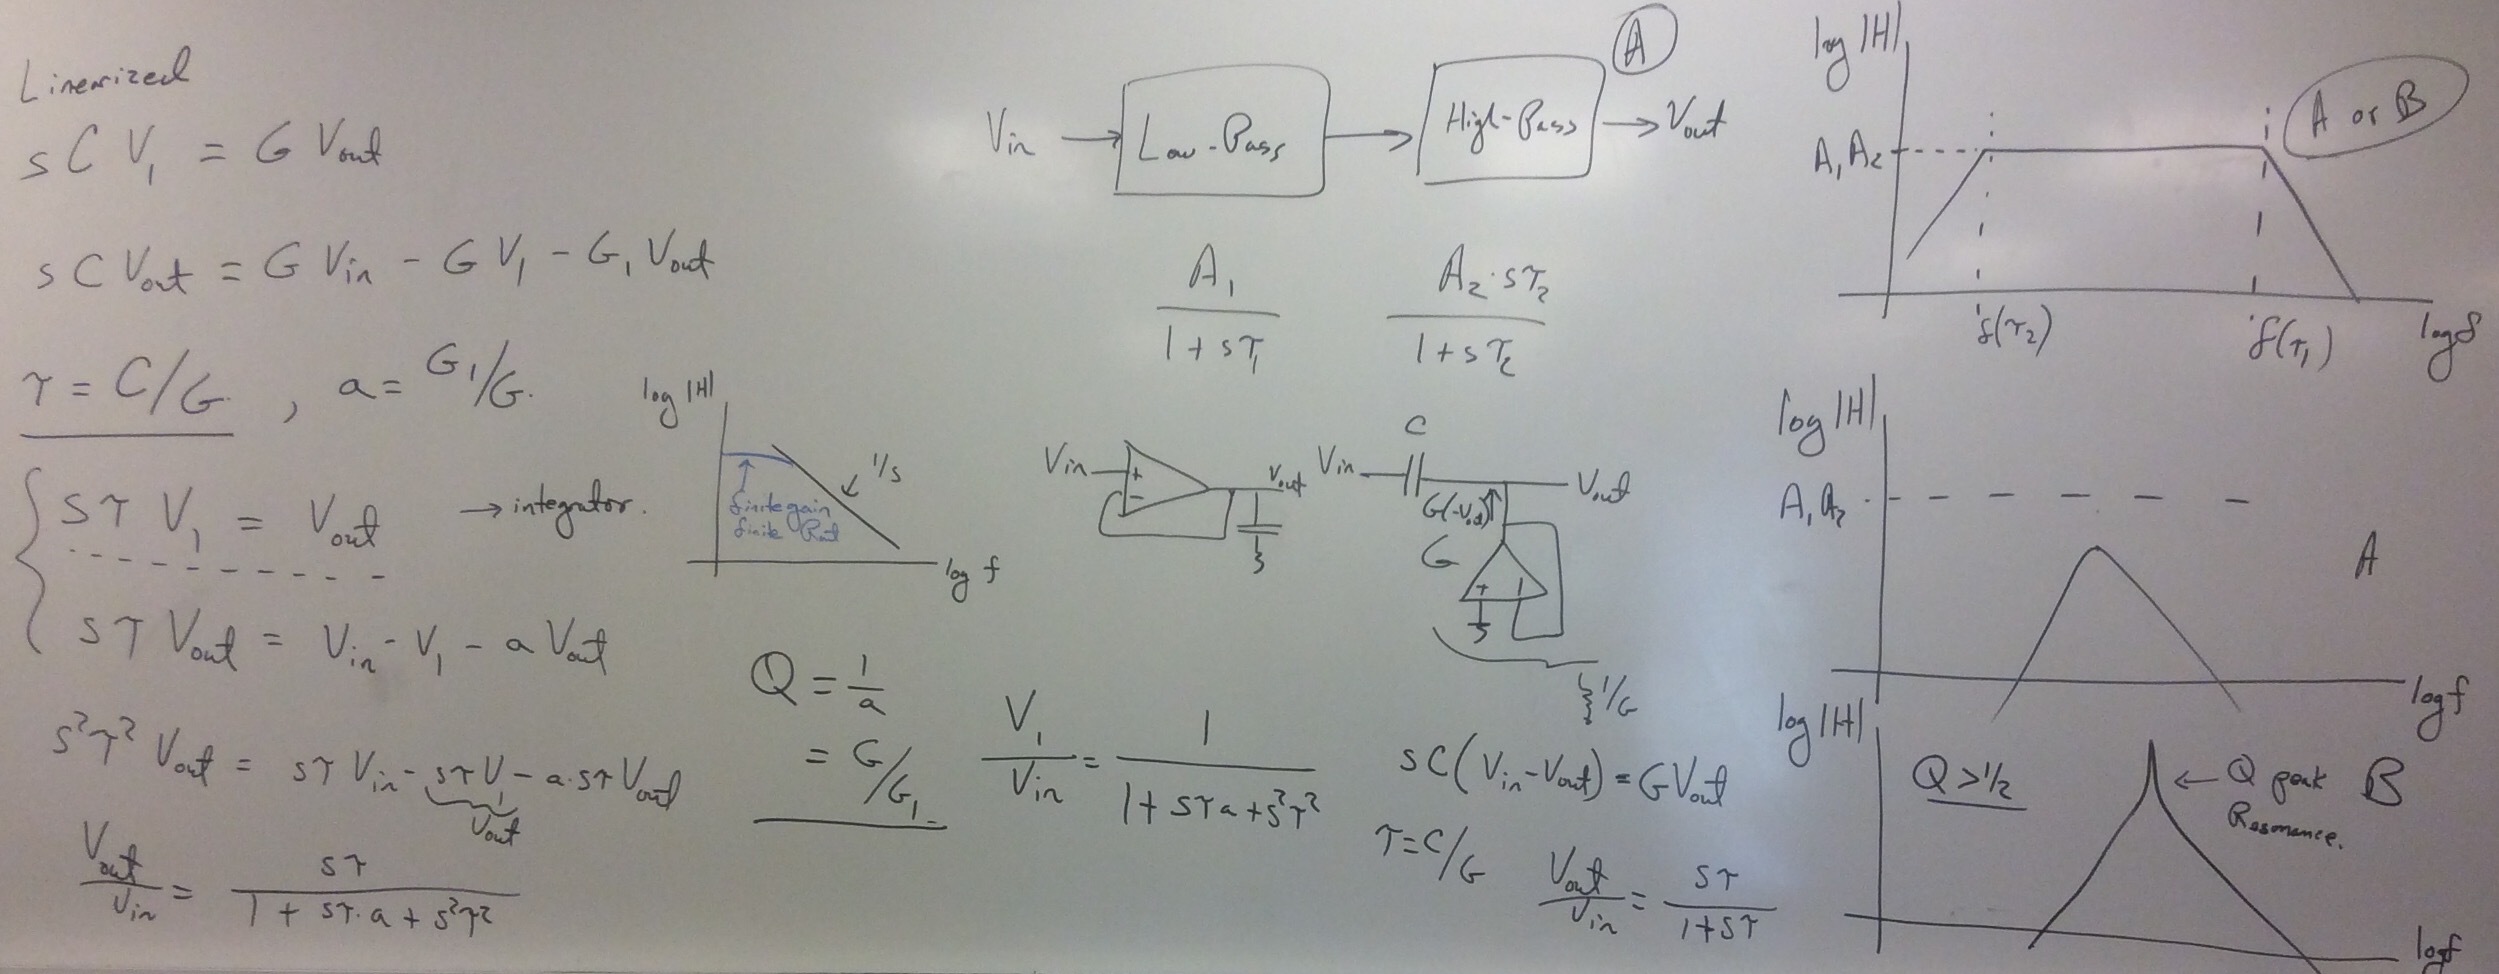 Linearized
sCV₁ = GVout
sCVout = GVin - GV₁ - G₁Vout
τ = C/G , a = G₁/G
sτV₁ = Vout → integrator.
sτVout = Vin - V₁ - aVout
s²τ²Vout = sτVin - sτV₁ - a·sτVout
Vout
Vout/Vin = sτ/(1 + sτ·a + s²τ²)
log |H|
1/s
finite gain
finite Rout
log f
Q = 1/a
= G/G₁
V₁/Vin = 1/(1 + sτa + s²τ²)
A
Vin → Low-Pass → High-Pass → Vout
A₁/(1 + sτ₁)
A₂·sτ₂/(1 + sτ₂)
Vin + - Vout
C
Vin Vout
G(-Vout)
G + -
1/G
sC(Vin-Vout) = GVout
τ=C/G
Vout/Vin = sτ/(1+sτ)
log |H|
A or B
A₁A₂
f(τ₂) f(τ₁) log f
log |H|
A₁A₂
A
log f
log |H|
Q > 1/2
← Q peak
Resonance.
B
log f